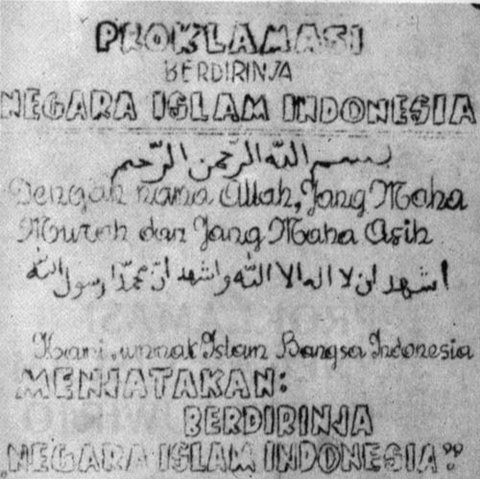 PROKLAMASI
BERDIRINJA
NEGARA ISLAM INDONESIA
بسم الله الرّحمن الرّحيم
Dengan nama Allah, Jang Maha
Murah dan Jang Maha Asih
اشهد ان لا اله الا الله واشهد انّ محمّدا رسول الله
Kami, ummat Islam Bangsa Indonesia
MENJATAKAN:
BERDIRINJA
„NEGARA ISLAM INDONESIA"